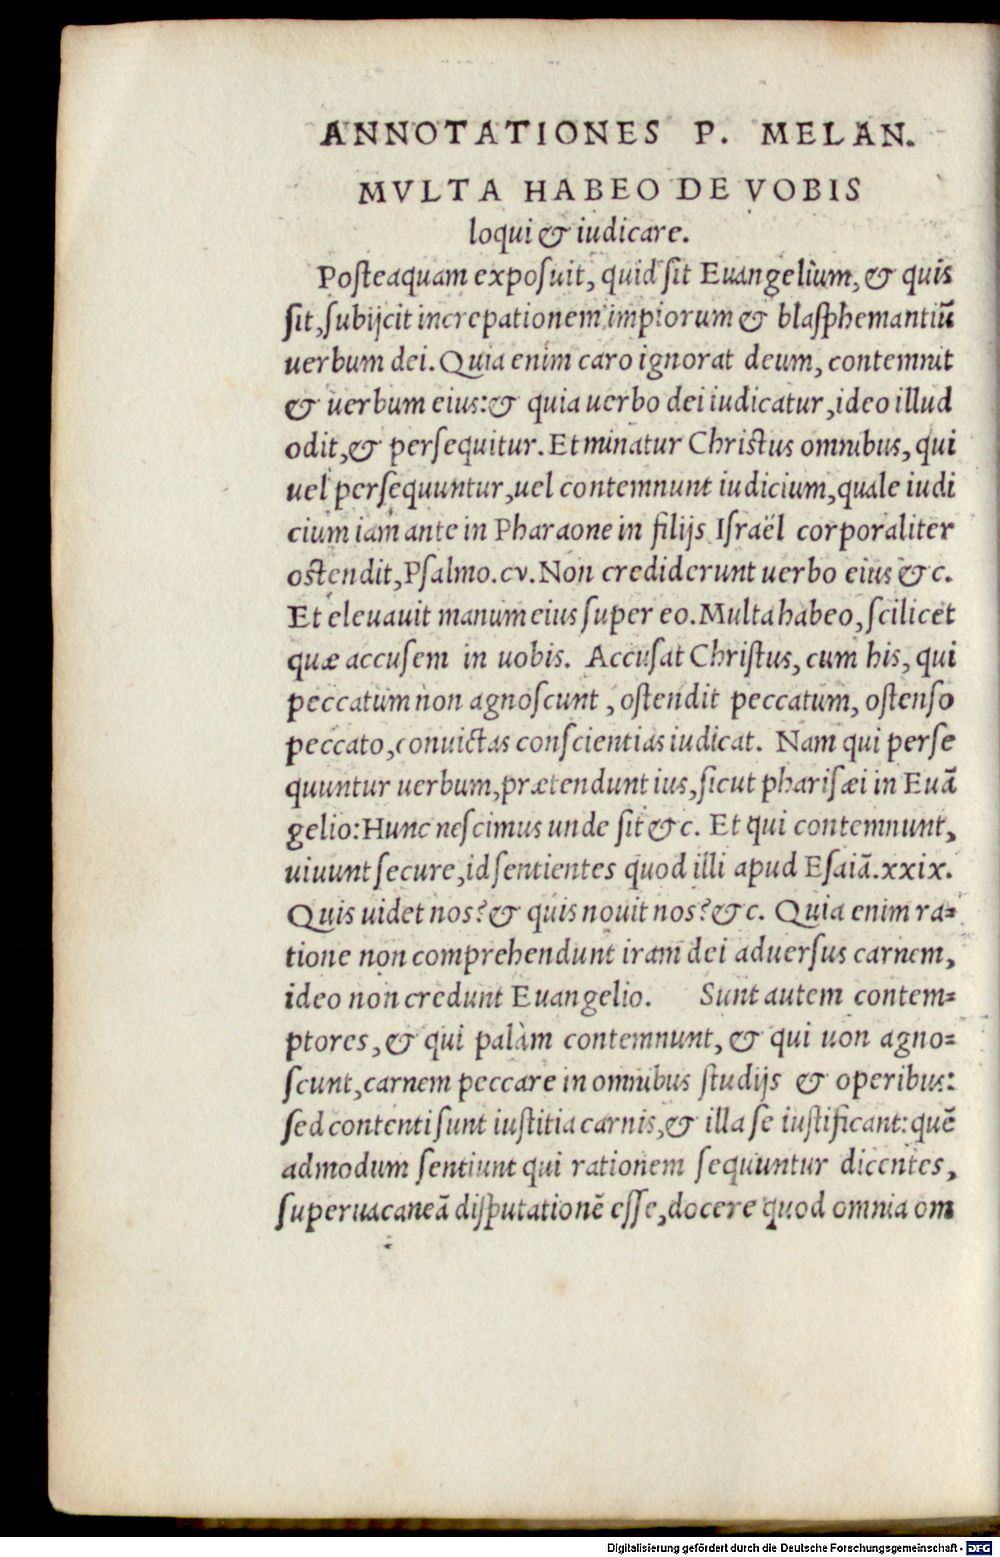 ANNOTATIONES P. MELAN.
MVLTA HABEO DE VOBIS
loqui & iudicare.
Poſteaquam expoſuit, quid ſit Euangelium, & quis
ſit, ſubijcit increpationem impiorum & blaſphemantiū
uerbum dei. Quia enim caro ignorat deum, contemnit
& uerbum eius: & quia uerbo dei iudicatur, ideo illud
odit, & perſequitur. Et minatur Chriſtus omnibus, qui
uel perſequuntur, uel contemnunt iudicium, quale iudi
cium iam ante in Pharaone in filijs Iſraël corporaliter
oſtendit, Pſalmo. cv. Non crediderunt uerbo eius &c.
Et eleuauit manum eius ſuper eo. Multa habeo, ſcilicet
quæ accuſem in uobis. Accuſat Chriſtus, cum his, qui
peccatum non agnoſcunt, oſtendit peccatum, oſtenſo
peccato, conuictas conſcientias iudicat. Nam qui perſe
quuntur uerbum, prætendunt ius, ſicut phariſæi in Euā
gelio: Hunc neſcimus unde ſit &c. Et qui contemnunt,
uiuunt ſecure, id ſentientes quod illi apud Eſaiā. xxix.
Quis uidet nos? & quis nouit nos? &c. Quia enim ra=
tione non comprehendunt iram dei aduerſus carnem,
ideo non credunt Euangelio. Sunt autem contem=
ptores, & qui palàm contemnunt, & qui uon agno=
ſcunt, carnem peccare in omnibus ſtudijs & operibus:
ſed contenti ſunt iuſtitia carnis, & illa ſe iuſtificant: quē
admodum ſentiunt qui rationem ſequuntur dicentes,
ſuperuacaneā diſputationē eſſe, docere quod omnia om
Digitalisierung gefördert durch die Deutsche Forschungsgemeinschaft - DFG